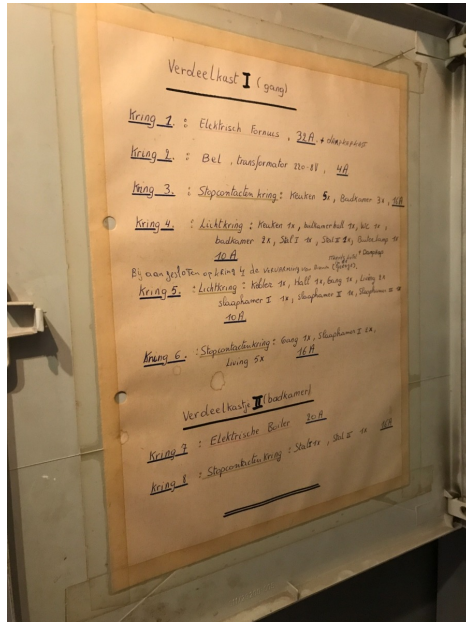 Verdeelkast I (gang)
Kring 1. : Elektrisch Fornuis, 32A. + dampkap
Kring 2. : Bel, transformator 220-8V, 4A
Kring 3. : Stopcontacten kring : Keuken 5x, Badkamer 3x, 16A
Kring 4. : Lichtkring : Keuken 1x, hall 1x, WC 1x,
badkamer 2x, Stal I 1x, Stal II 2x, 1x
10A + Dampkap
Bij aangesloten op kring 4 de verwarming van (Garage)
Kring 5. : Lichtkring : Kelder 1x, Hall 1x, Gang 1x, Living 2x
slaapkamer I 1x, slaapkamer II 1x, slaapkamer III 1x
10A
Kring 6. : Stopcontactenkring : Gang 1x, Slaapkamer I 2x,
Living 5x 16A
Verdeelkastje II (badkamer)
Kring 7 : Elektrische Boiler 20A
Kring 8 : Stopcontactenkring : Stal I 1x, Stal II 1x